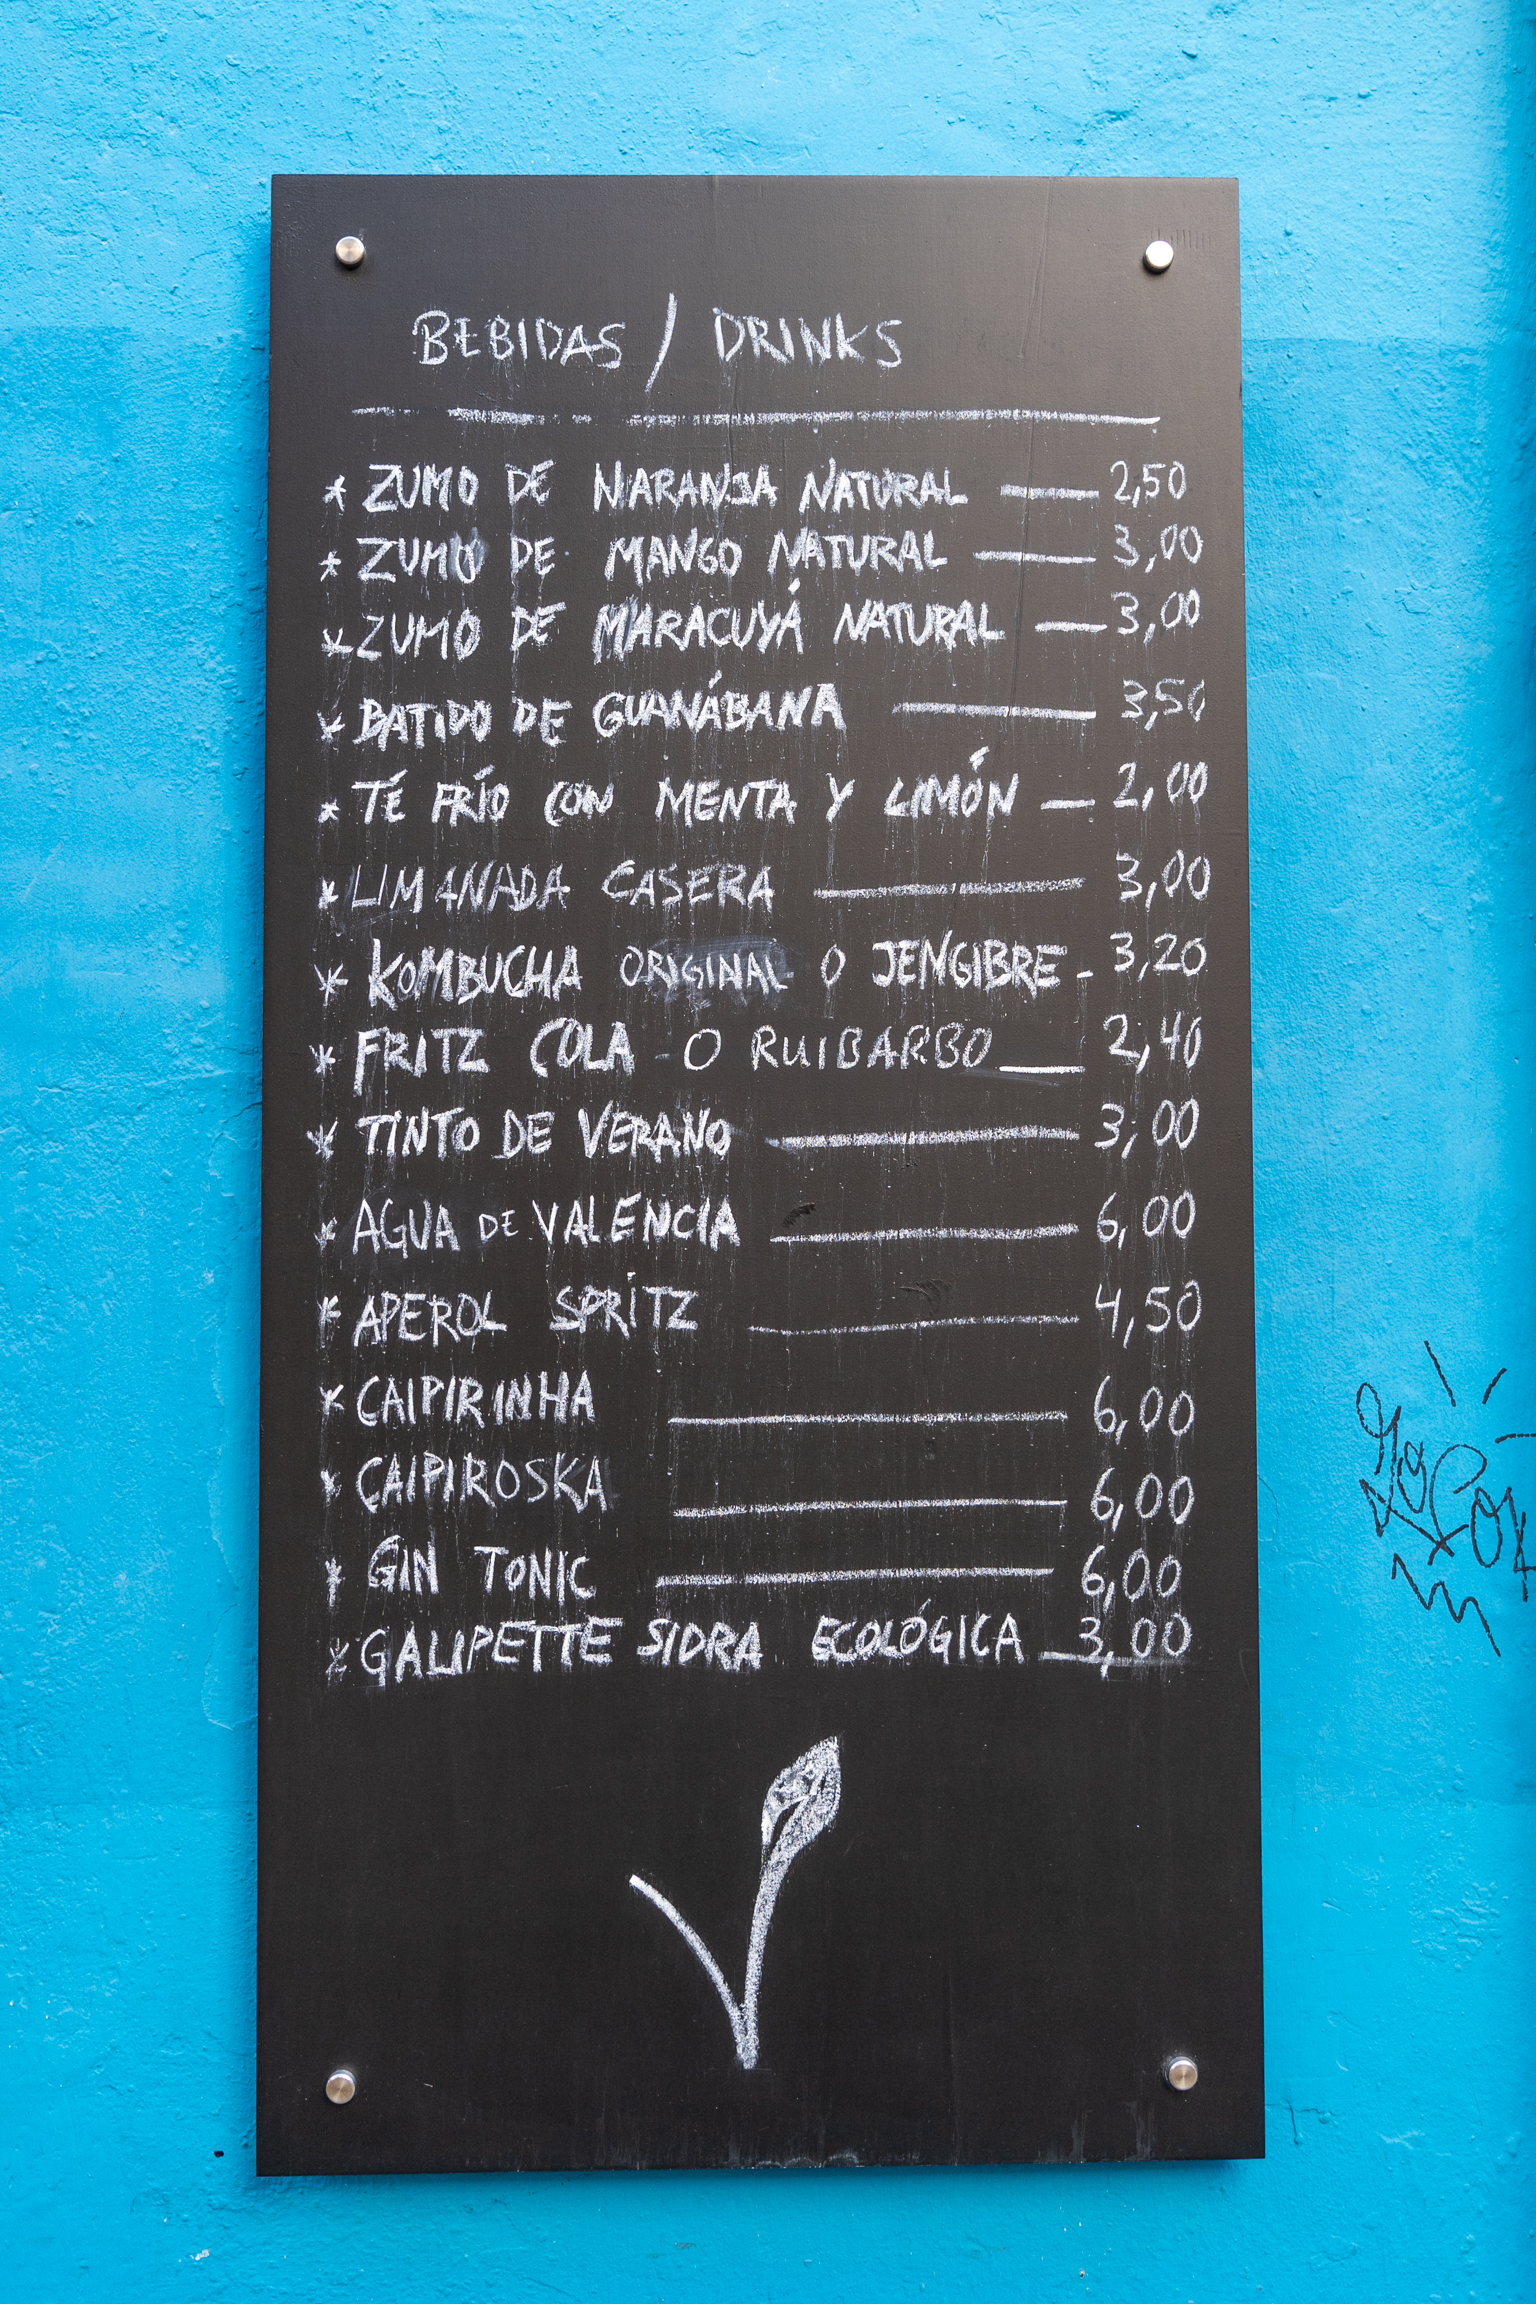 BEBIDAS / DRINKS
* ZUMO DE NARANJA NATURAL — 2,50
* ZUMO DE MANGO NATURAL — 3,00
* ZUMO DE MARACUYÁ NATURAL — 3,00
* BATIDO DE GUANÁBANA — 3,50
* TÉ FRÍO CON MENTA Y LIMÓN — 2,00
* LIMANADA CASERA — 3,00
* KOMBUCHA ORIGINAL O JENGIBRE - 3,20
* FRITZ COLA O RUIBARBO — 2,40
* TINTO DE VERANO — 3,00
* AGUA DE VALENCIA — 6,00
* APEROL SPRITZ — 4,50
* CAIPIRINHA — 6,00
* CAIPIROSKA — 6,00
* GIN TONIC — 6,00
* GALIPETTE SIDRA ECOLÓGICA — 3,00